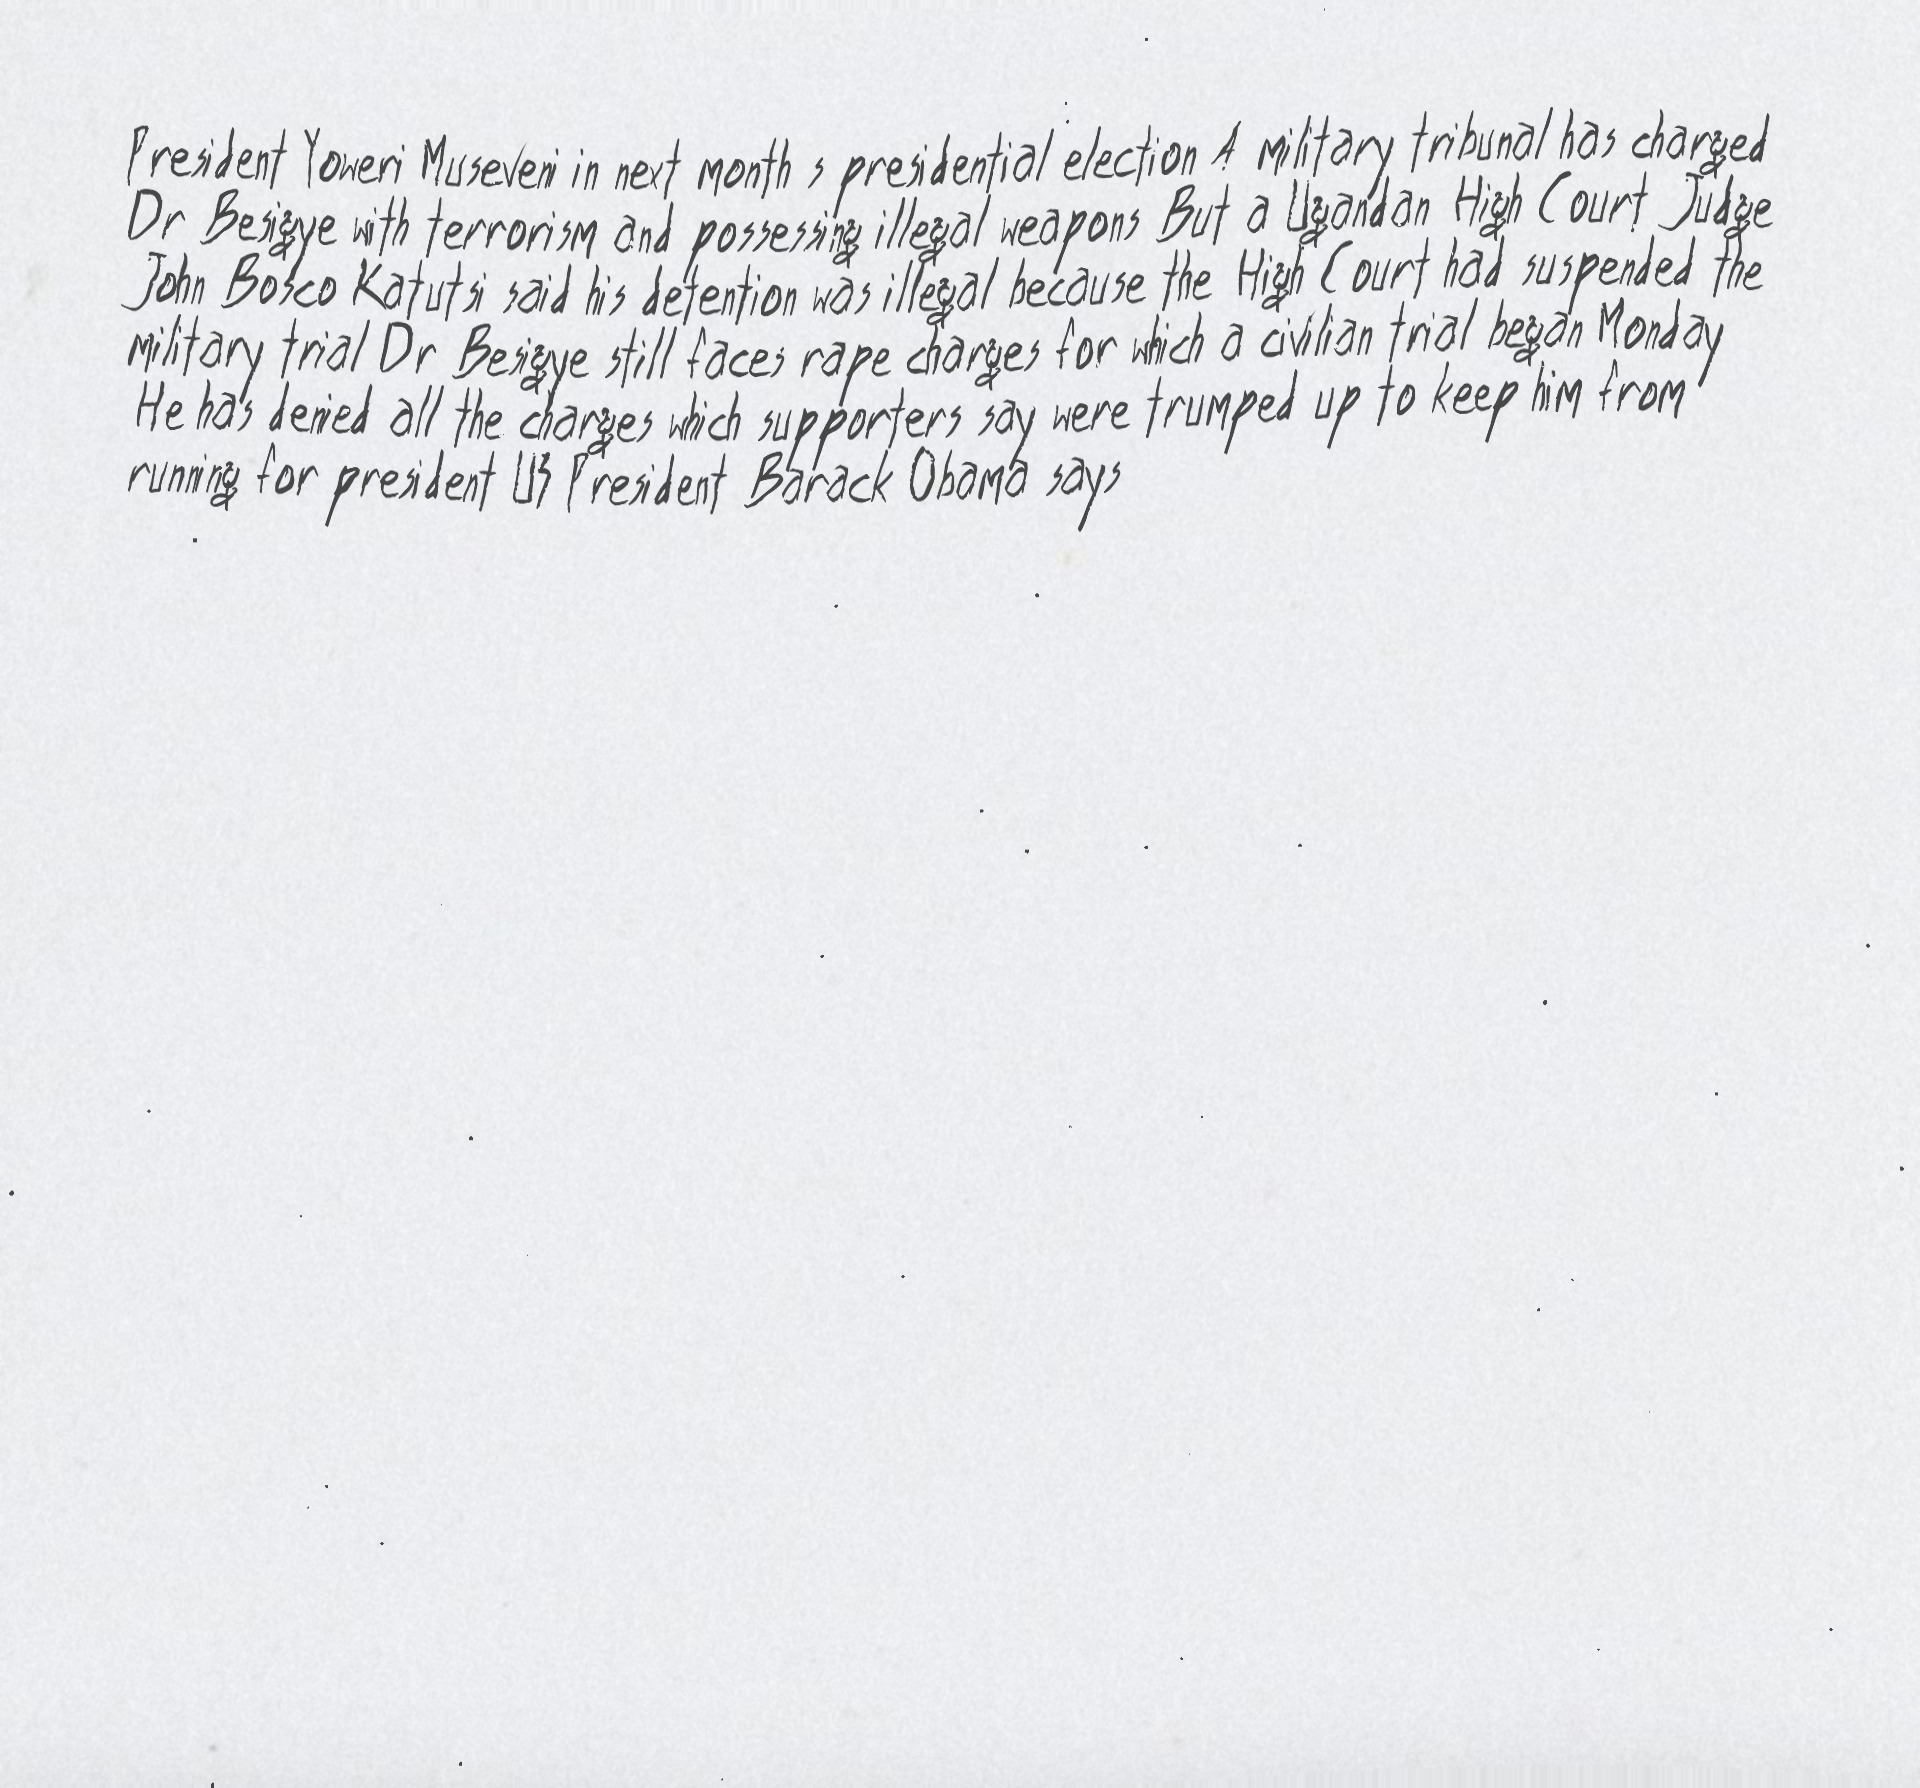 President Yoweri Museveni in next month s presidential election A military tribunal has charged
Dr Besigye with terrorism and possessing illegal weapons But a Ugandan High Court Judge
John Bosco Katutsi said his detention was illegal because the High Court had suspended the
military trial Dr Besigye still faces rape charges for which a civilian trial began Monday
He has denied all the charges which supporters say were trumped up to keep him from
running for president US President Barack Obama says